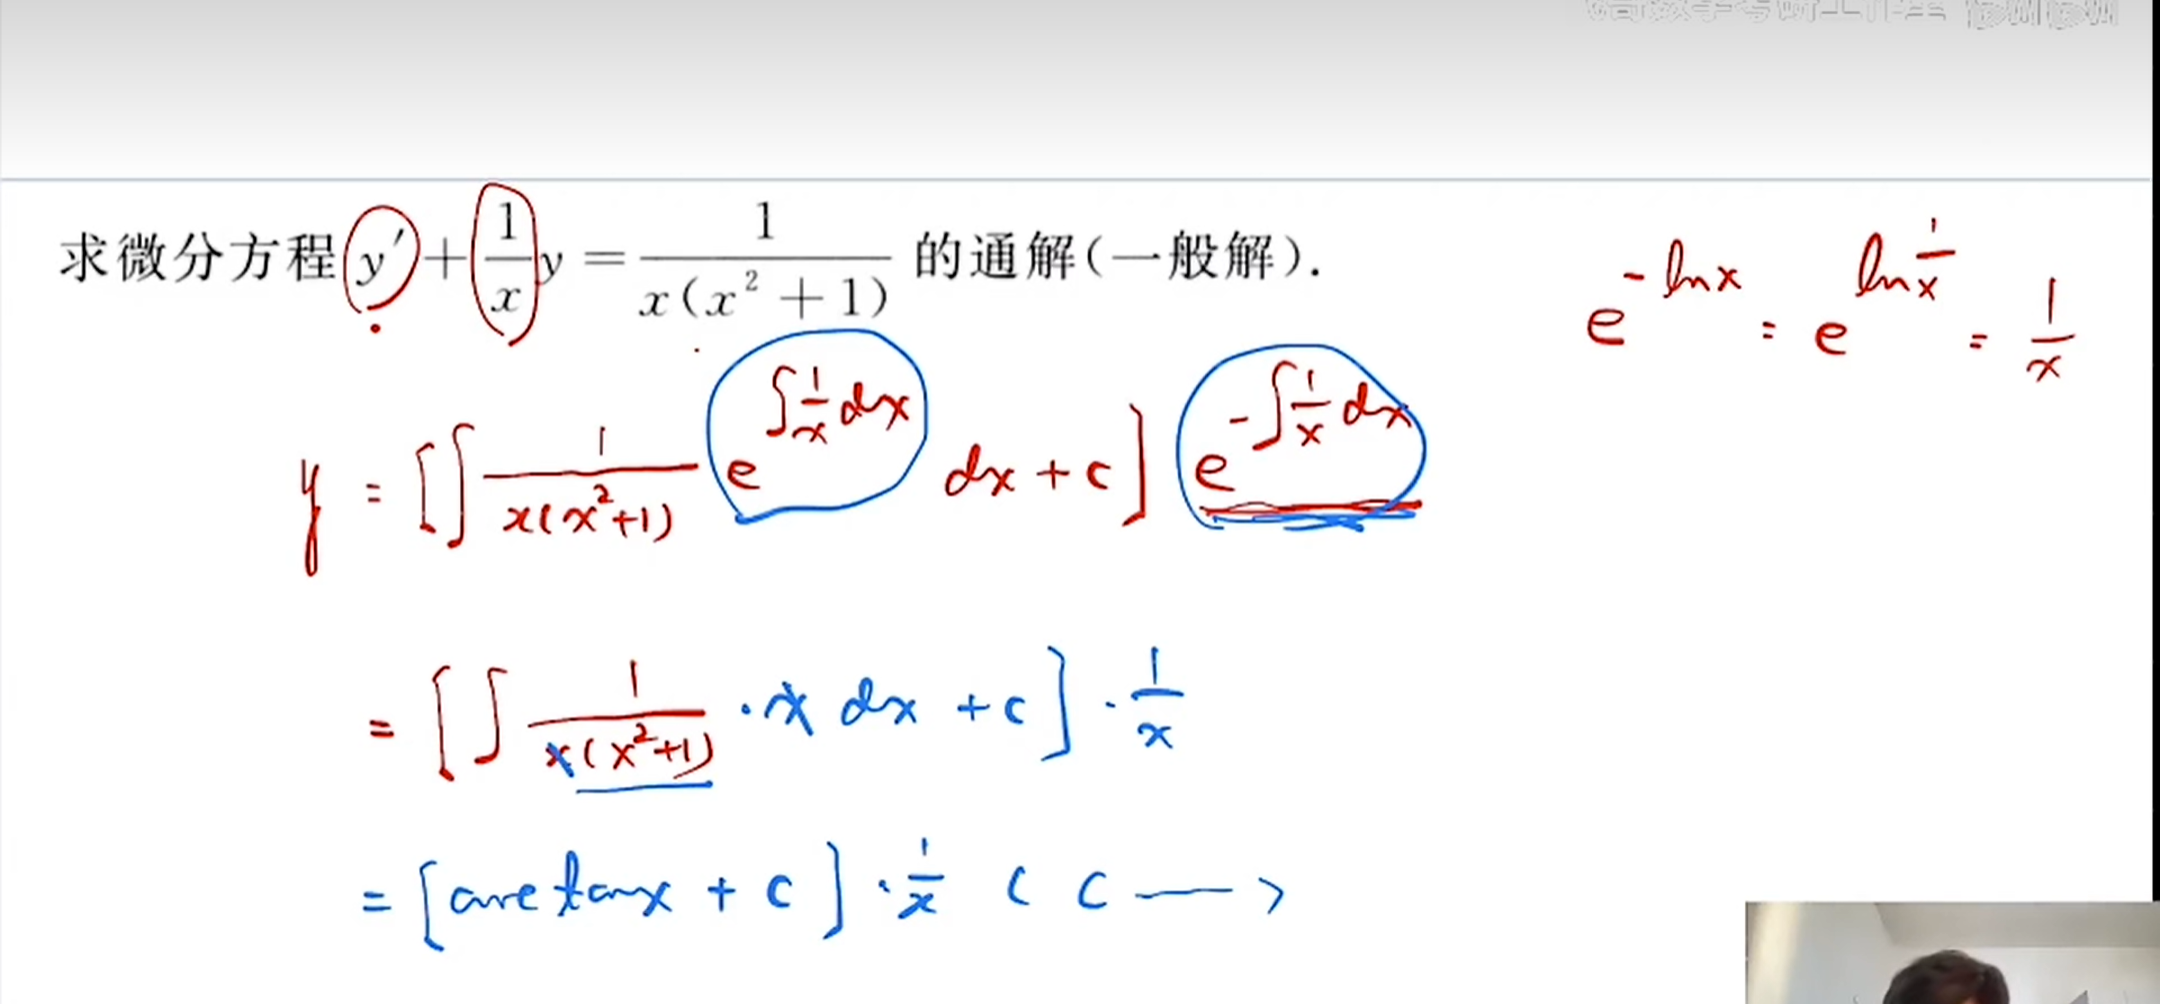 求微分方程 y′ + 1/x y = 1/(x(x² + 1)) 的通解(一般解).
e^(-lnx) = e^(ln 1/x) = 1/x
y = [∫ 1/(x(x²+1)) e^(∫ 1/x dx) dx + c] e^(-∫ 1/x dx)
= [∫ 1/(x(x²+1)) · x dx + c] · 1/x
= [arctanx + c] · 1/x ( c — )